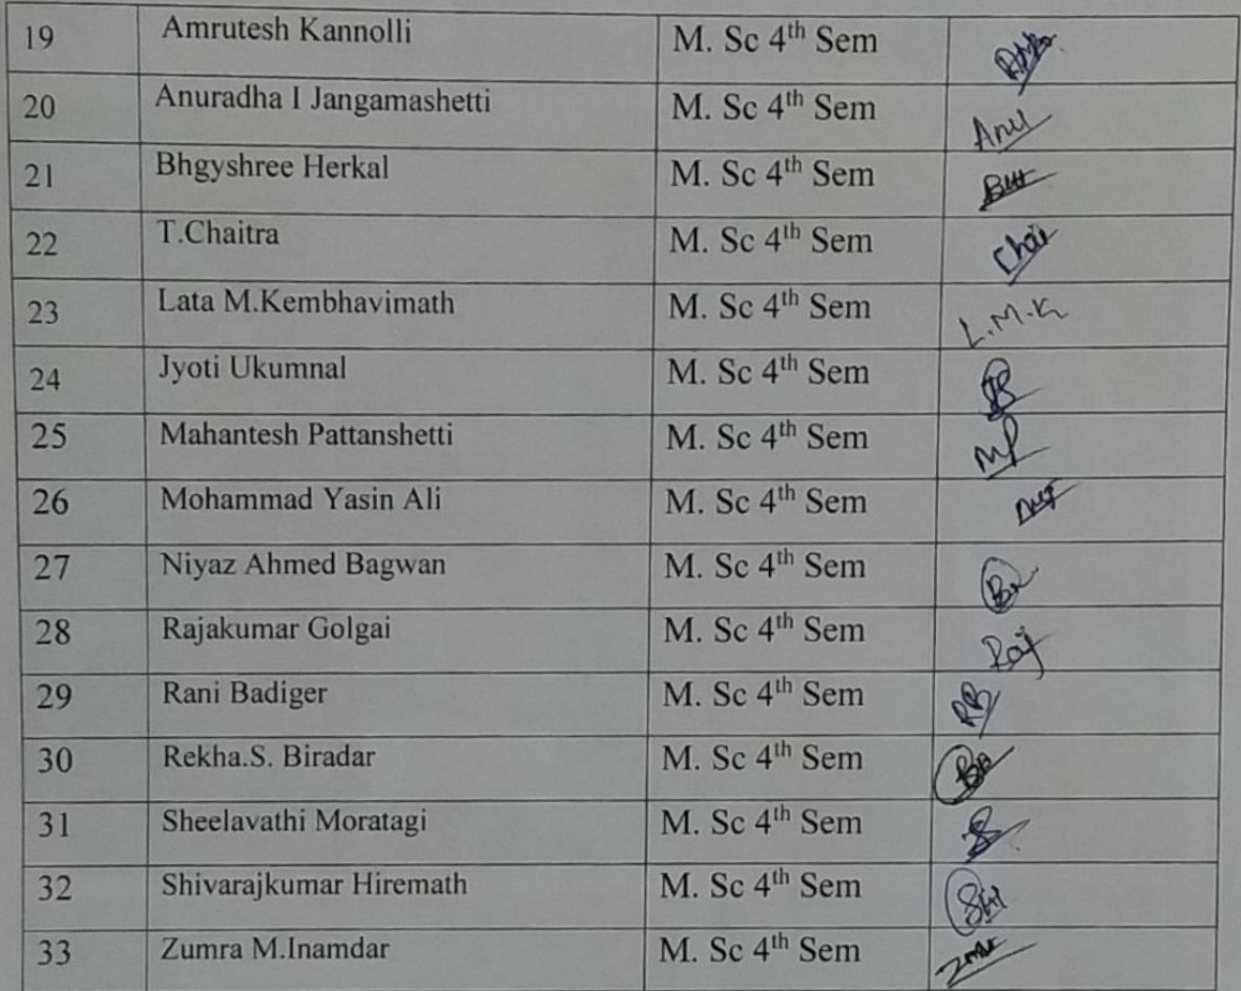 19 Amrutesh Kannolli M. Sc 4th Sem
20 Anuradha I Jangamashetti M. Sc 4th Sem Anu
21 Bhgyshree Herkal M. Sc 4th Sem
22 T.Chaitra M. Sc 4th Sem Chai
23 Lata M.Kembhavimath M. Sc 4th Sem L.M.K
24 Jyoti Ukumnal M. Sc 4th Sem
25 Mahantesh Pattanshetti M. Sc 4th Sem MP
26 Mohammad Yasin Ali M. Sc 4th Sem
27 Niyaz Ahmed Bagwan M. Sc 4th Sem
28 Rajakumar Golgai M. Sc 4th Sem Raj
29 Rani Badiger M. Sc 4th Sem RB
30 Rekha.S. Biradar M. Sc 4th Sem
31 Sheelavathi Moratagi M. Sc 4th Sem
32 Shivarajkumar Hiremath M. Sc 4th Sem
33 Zumra M.Inamdar M. Sc 4th Sem